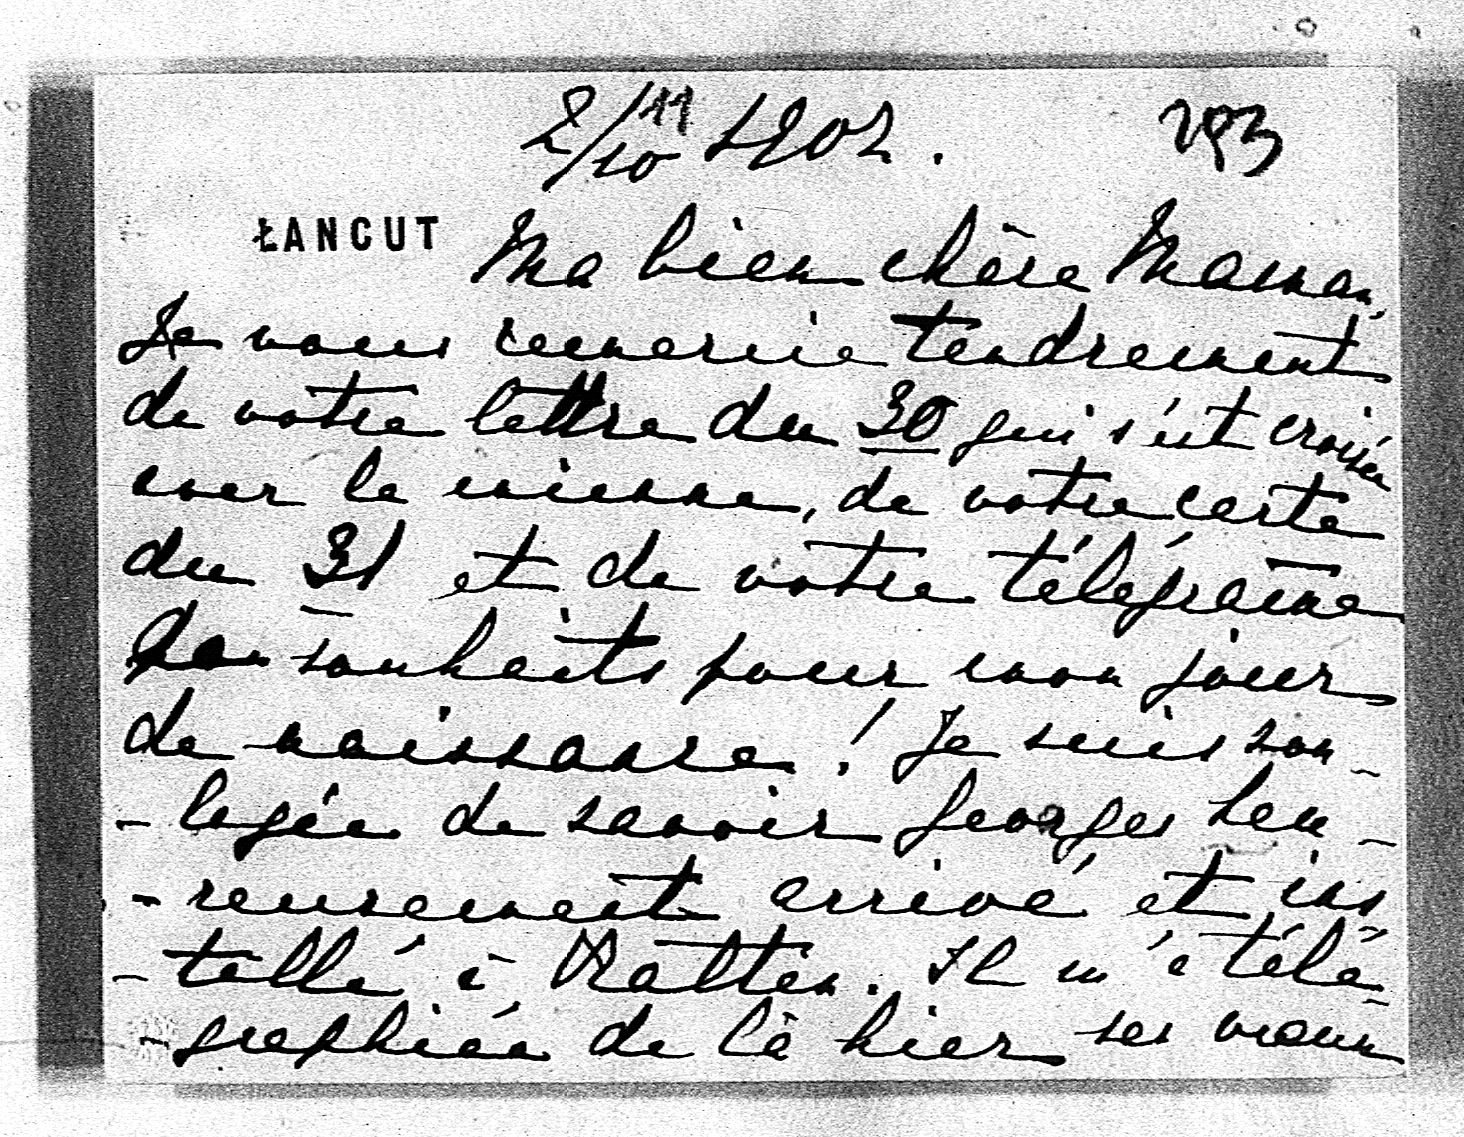 2/10 11 1902. 293
ŁANCUT Ma bien chère Maman,
Je vous remercie tendrement
de votre lettre du 30 qui s'est croisée
avec la mienne, de votre carte
du 31 et de votre télégramme
de souhaits pour mon jour
de naissance! Je suis sou-
-lagée de savoir Georges heu-
-reusement arrivé et ins-
-tallé à Malten. Il m'a télé-
-graphiée de là hier ses vœux